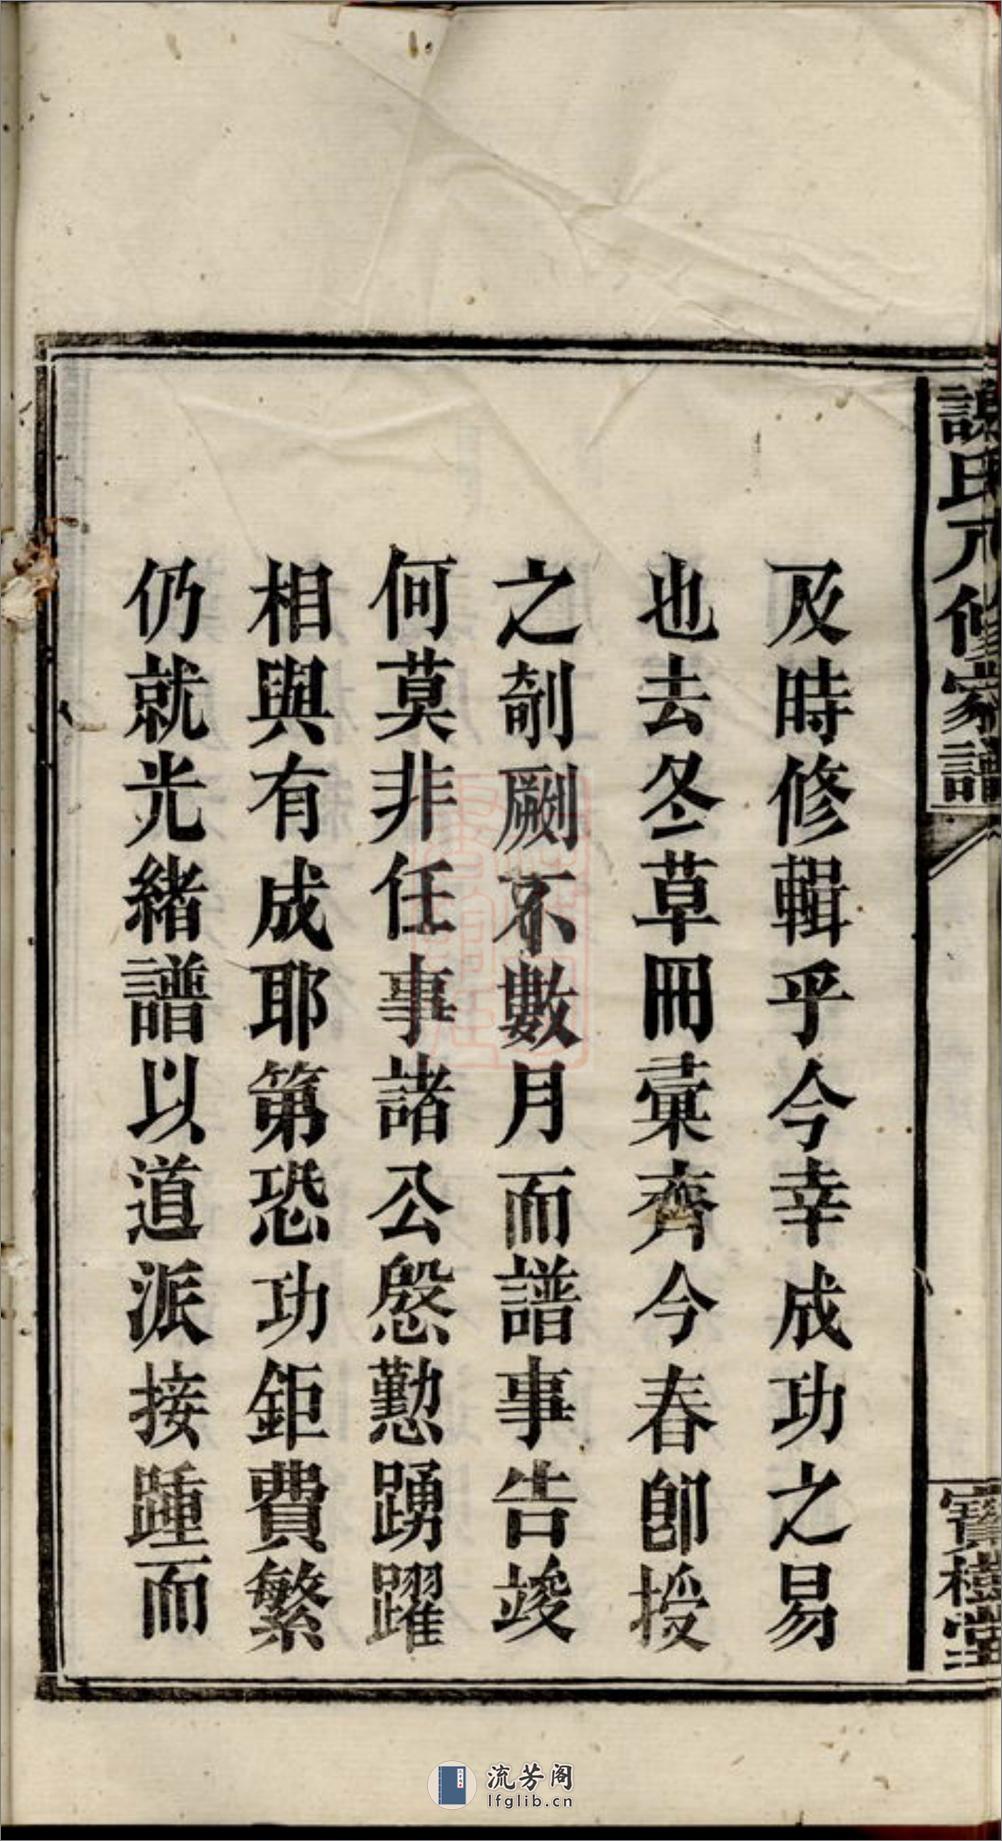 謝氏八修家譜
寶樹堂
及時修輯乎今幸成功之易
也去冬草冊彙齊今春卽授
之剞劂不數月而譜事告竣
何莫非任事諸公慇懃踴躍
相與有成耶第恐功鉅費繁
仍就光緒譜以道派接踵而
流芳阁
lfglib.cn